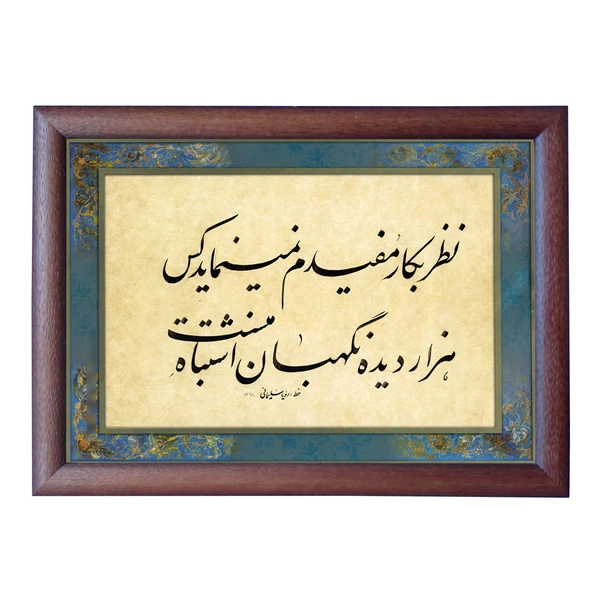 نظر بکار مفیدم نمینماید کس
هزار دیده نگهبان اشتباه منست
خط سلیمانی